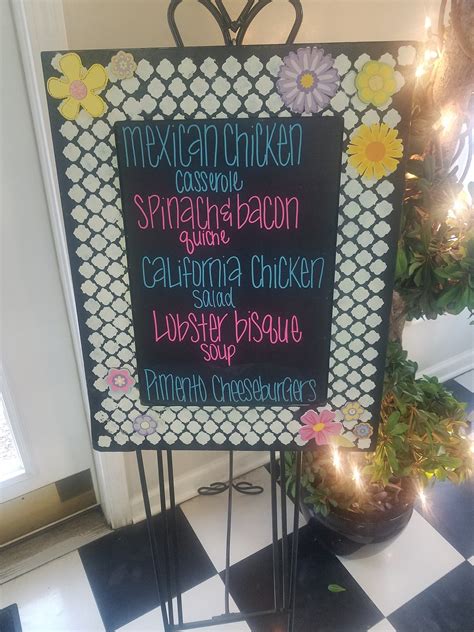 Mexican Chicken
casserole
Spinach & Bacon
quiche
California Chicken
Salad
Lobster Bisque
Soup
Pimento Cheeseburgers